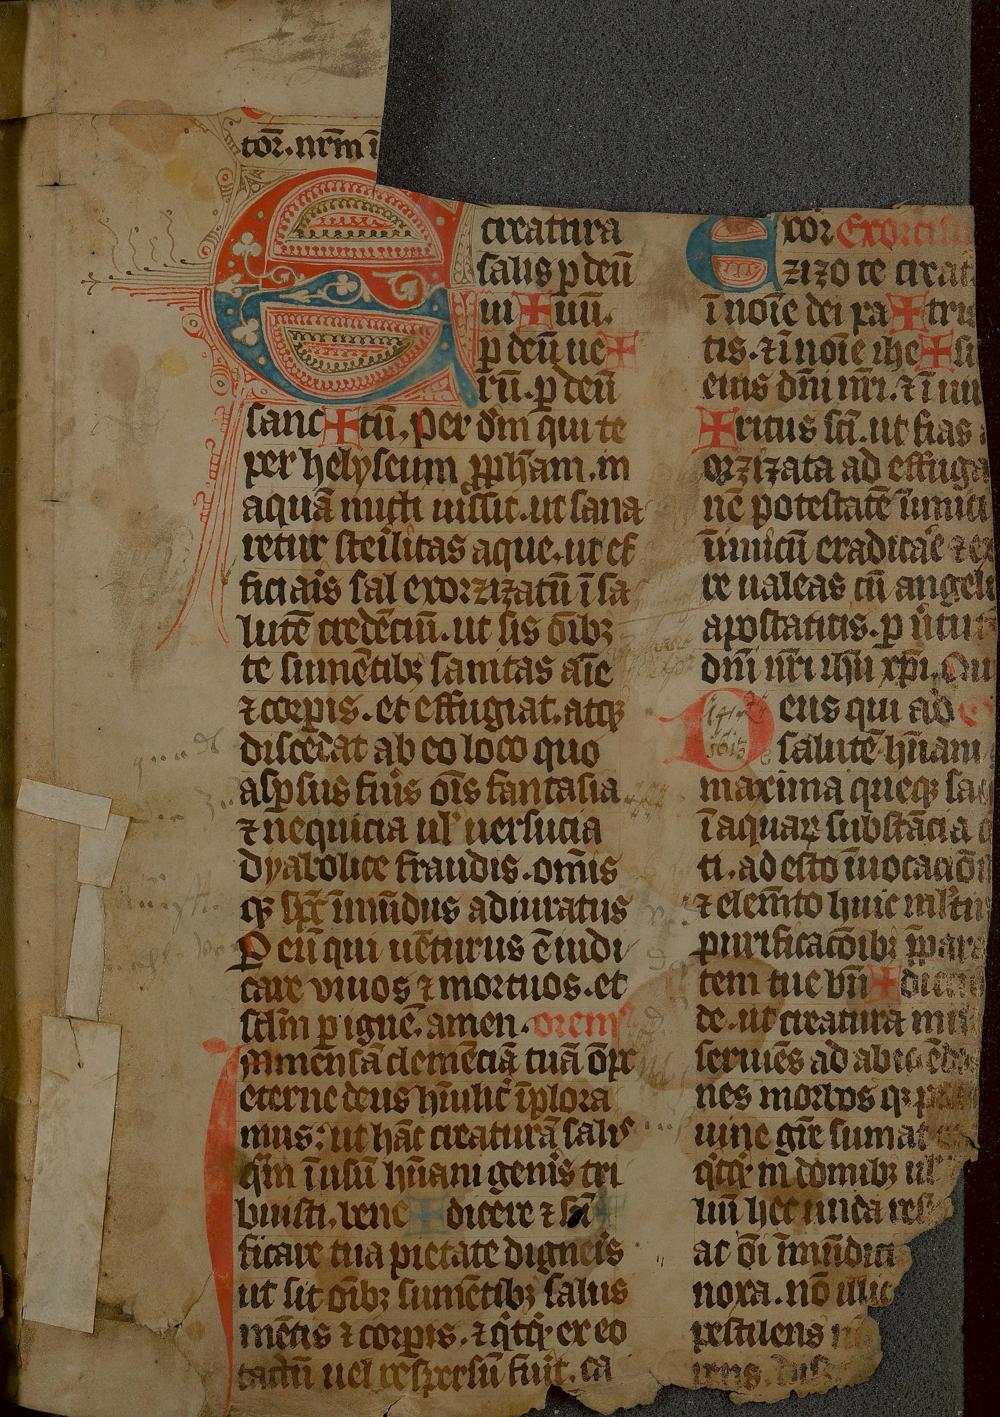 toꝛ. nr̄m ī
E creatura
salis p deū
ui ✠ uū.
p̱ deū ue ✠
rū. p̱ deū
sanc ✠ tū. per dm̄ qui te
per helyseum ꝓph̄am. in
aquā mitti iussit. ut sana
retur steͥlitas aque. ut ef
ficiaͥs sal exoꝛzizatū ī sa
lutē credēciū. ut sis ōibꝫ
te sumētibꝫ sanitas aīe
⁊ coꝛpͥis. et effugiat. atqꝫ
discedat ab eo loco quo
aspsus fuͥs oīs fantasia
⁊ neq̄uicia ul' uersucia
dyabolice fraudis. om̄is
qꝫ sp̄c īmūdus adiuratus
P̱ eū qui uēturus ē iudi
care viuos ⁊ moꝛtuos. et
sclm̄ p̱ ignē. amen. oꝛem9
Immensā clemēciā tuā op̄c
eterne deus hūilit' īploꝛa
mus: ut hāc creaturā salis
quā ī usū hūani genīs tri
buisti, bene ✠ dicere ⁊ sc̄i ✠
ficare tua pietate digneris
ut sit ōibꝫ sumētibꝫ salus
mētis ⁊ coꝛpͥis. ⁊ qͥtqͥ ex eo
tactū uel respersū fuͥit. ca
Exoꝛ Exoꝛcis
zizo te creat
ī noīe dei pa ✠ tris
tis. ⁊ ī noīe ihe ✠ su
eius dn̄i nr̄i. ⁊ ī uir
✠ ritus sc̄i. ut fias
oꝛzizata ad effuga
nē potestatē īimici
īimicū eradicaͤe ⁊ ex
re ualeas cū angel
apostaticis. p̱ uͥtut
dn̄i nr̄i ihū xp̄i. Qui
Deus qui ad
1612
1613
salutē hūani
maxima queqꝫ sac
ī aquaꝝ substācia
ti. ad esto īuocaciōī
⁊ elemēto huic m̄ltͥ
purificacōibꝫ p̄para
tem tue bn̄ ✠ dicc
de. ut creatura mis
seruiēs ad abic
nes moꝛbos qꝫ
uine gr̄e sumat
qͥtqͥ in domibꝫ ul'
liū hec unda res
ac ōi īmūdici
noxa. nō illic
pestilens